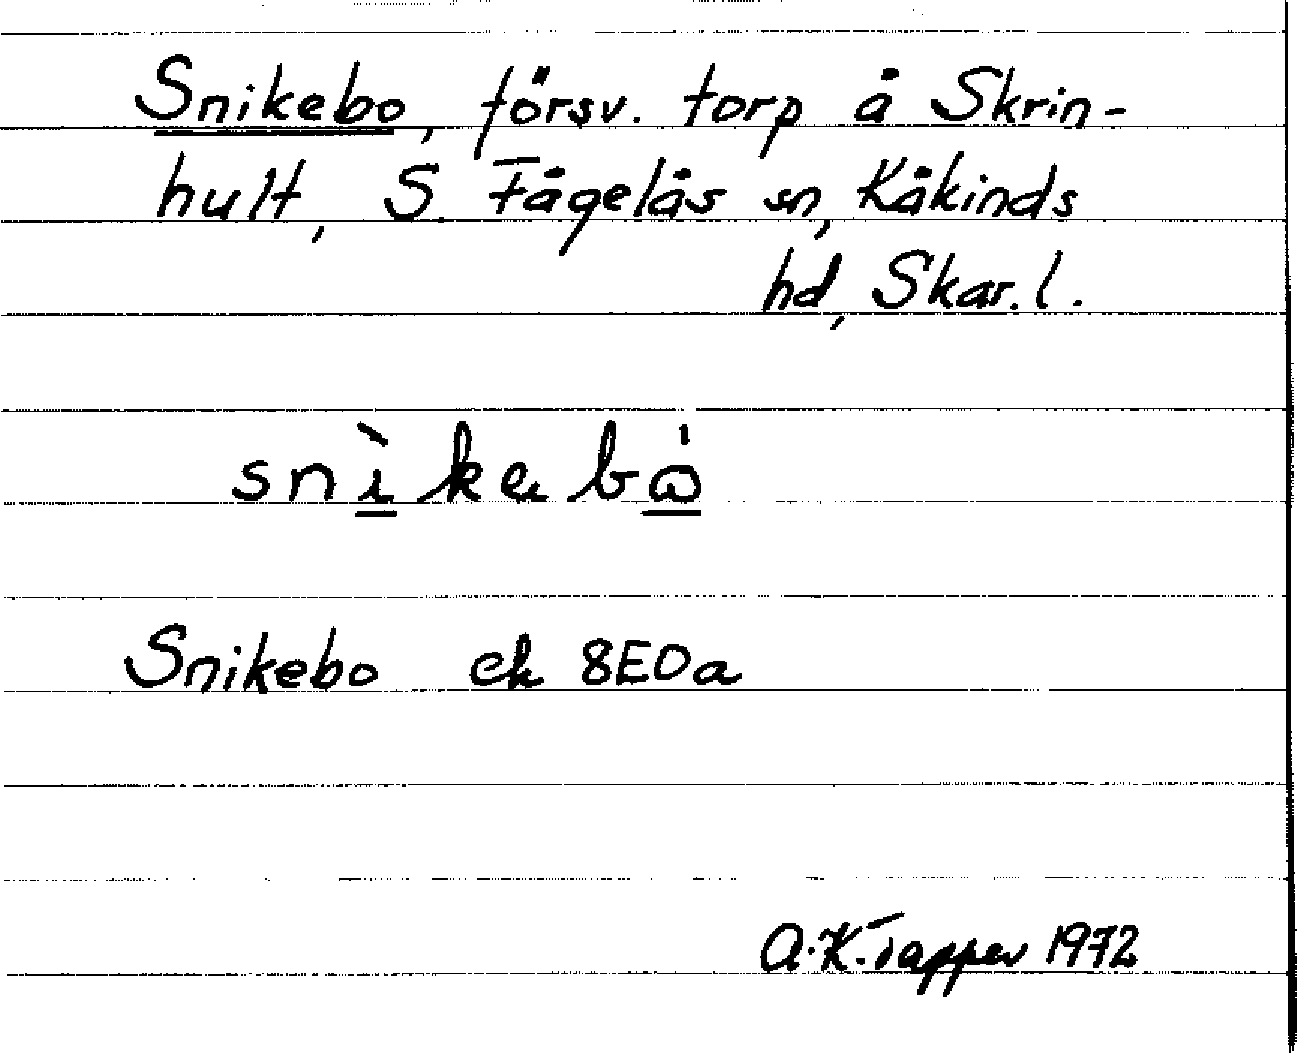 Snikebo, försv. torp å Skrin-
hult, S. Fågelås sn, Kåkinds
hd, Skar. l.
Snikebo ek 8E0a
A.K. Tapper 1972